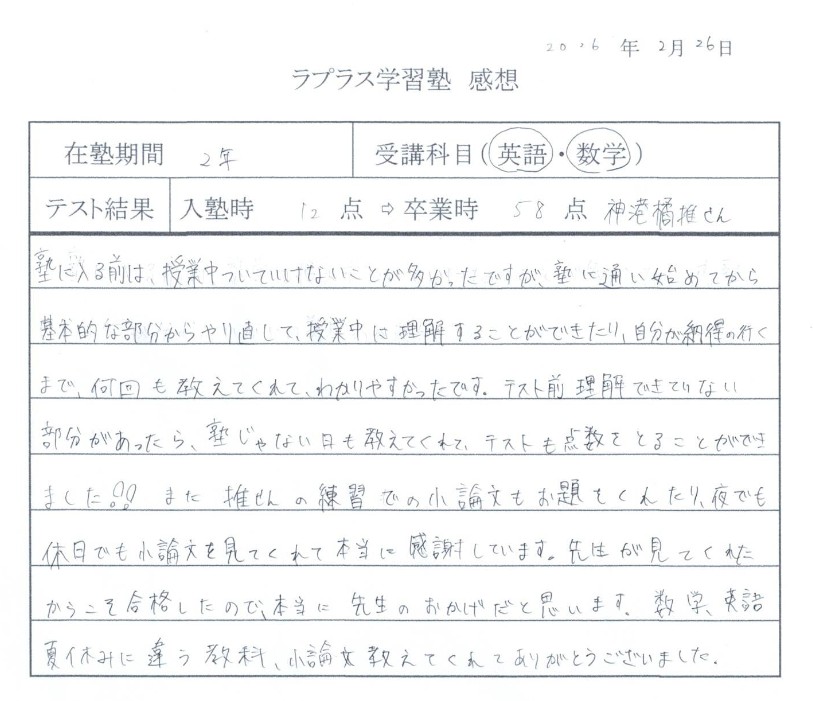 2026 年 2月 26日
ラプラス学習塾 感想
在塾期間 2年 受講科目(英語・数学)
テスト結果 入塾時 12 点 ⇨ 卒業時 58 点 神港橘推せん
塾に入る前は、授業中ついていけないことが多かったですが、塾に通い始めてから
基本的な部分からやり直して、授業中に理解することができたり、自分が納得の行く
まで、何回も教えてくれて、わかりやすかったです。テスト前理解できてない
部分があったら、塾じゃない日も教えてくれて、テストも点数をとることができ
ました!! また 推せんの練習での小論文もお題をくれたり、夜でも
休日でも小論文を見てくれて本当に感謝しています。先生が見てくれた
からこそ合格したので、本当に先生のおかげだと思います。数学、英語
夏休みに違う教科、小論文教えてくれてありがとうございました。